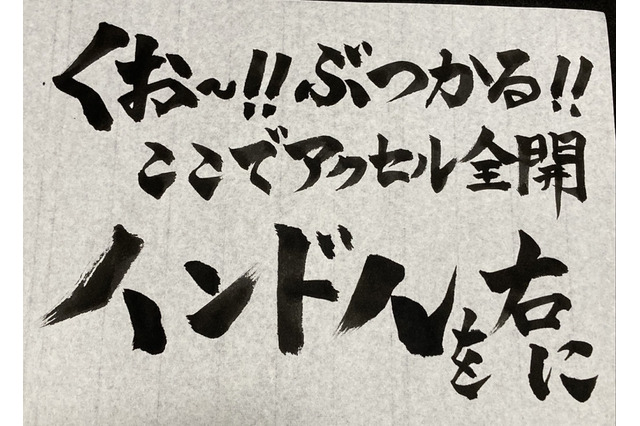 くお〜!!ぶつかる!!
ここでアクセル全開
ハンドルを右に